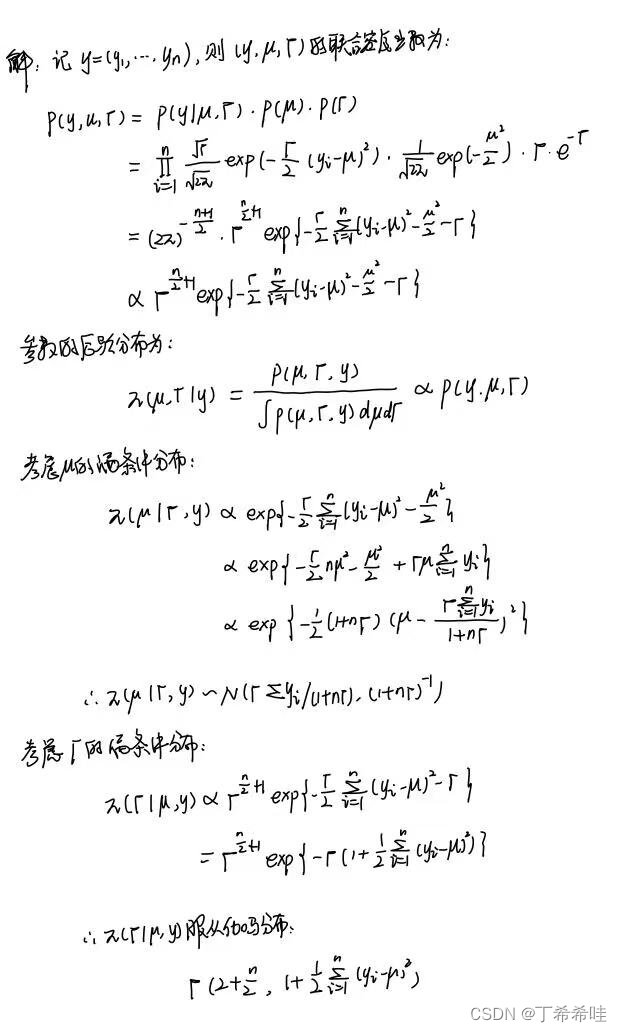 解：记 y=(y₁,…,yₙ), 则 (y,μ,τ) 的联合密度函数为:
p(y,μ,τ) = p(y|μ,τ)·p(μ)·p(τ)
= ∏_{i=1}^{n} √τ/√2π exp(-τ/2 (yᵢ-μ)²)·1/√2π exp(-μ²/2)·τ·e^{-τ}
= (2π)^{-(n+1)/2}·τ^{n/2+1} exp{-τ/2 ∑_{i=1}^{n}(yᵢ-μ)²-μ²/2-τ}
∝ τ^{n/2+1} exp{-τ/2 ∑_{i=1}^{n}(yᵢ-μ)²-μ²/2-τ}
参数的后验分布为:
π(μ,τ|y) = p(μ,τ,y) / ∫p(μ,τ,y)dμdτ ∝ p(y,μ,τ)
考虑μ的满条件分布:
π(μ|τ,y) ∝ exp{-τ/2 ∑_{i=1}^{n}(yᵢ-μ)²-μ²/2}
∝ exp{-τ/2 nμ²-μ²/2+τμ∑_{i=1}^{n}yᵢ}
∝ exp{-1/2(1+nτ)(μ-τ∑_{i=1}^{n}yᵢ/(1+nτ))²}
∴π(μ|τ,y)~N(τ∑yᵢ/(1+nτ),(1+nτ)⁻¹)
考虑τ的满条件分布:
π(τ|μ,y) ∝ τ^{n/2+1} exp{-τ/2 ∑_{i=1}^{n}(yᵢ-μ)²-τ}
= τ^{n/2+1} exp{-τ(1+1/2 ∑_{i=1}^{n}(yᵢ-μ)²)}
∴π(τ|μ,y)服从伽马分布:
Γ(2+n/2, 1+1/2 ∑_{i=1}^{n}(yᵢ-μ)²)
CSDN @丁希希哇